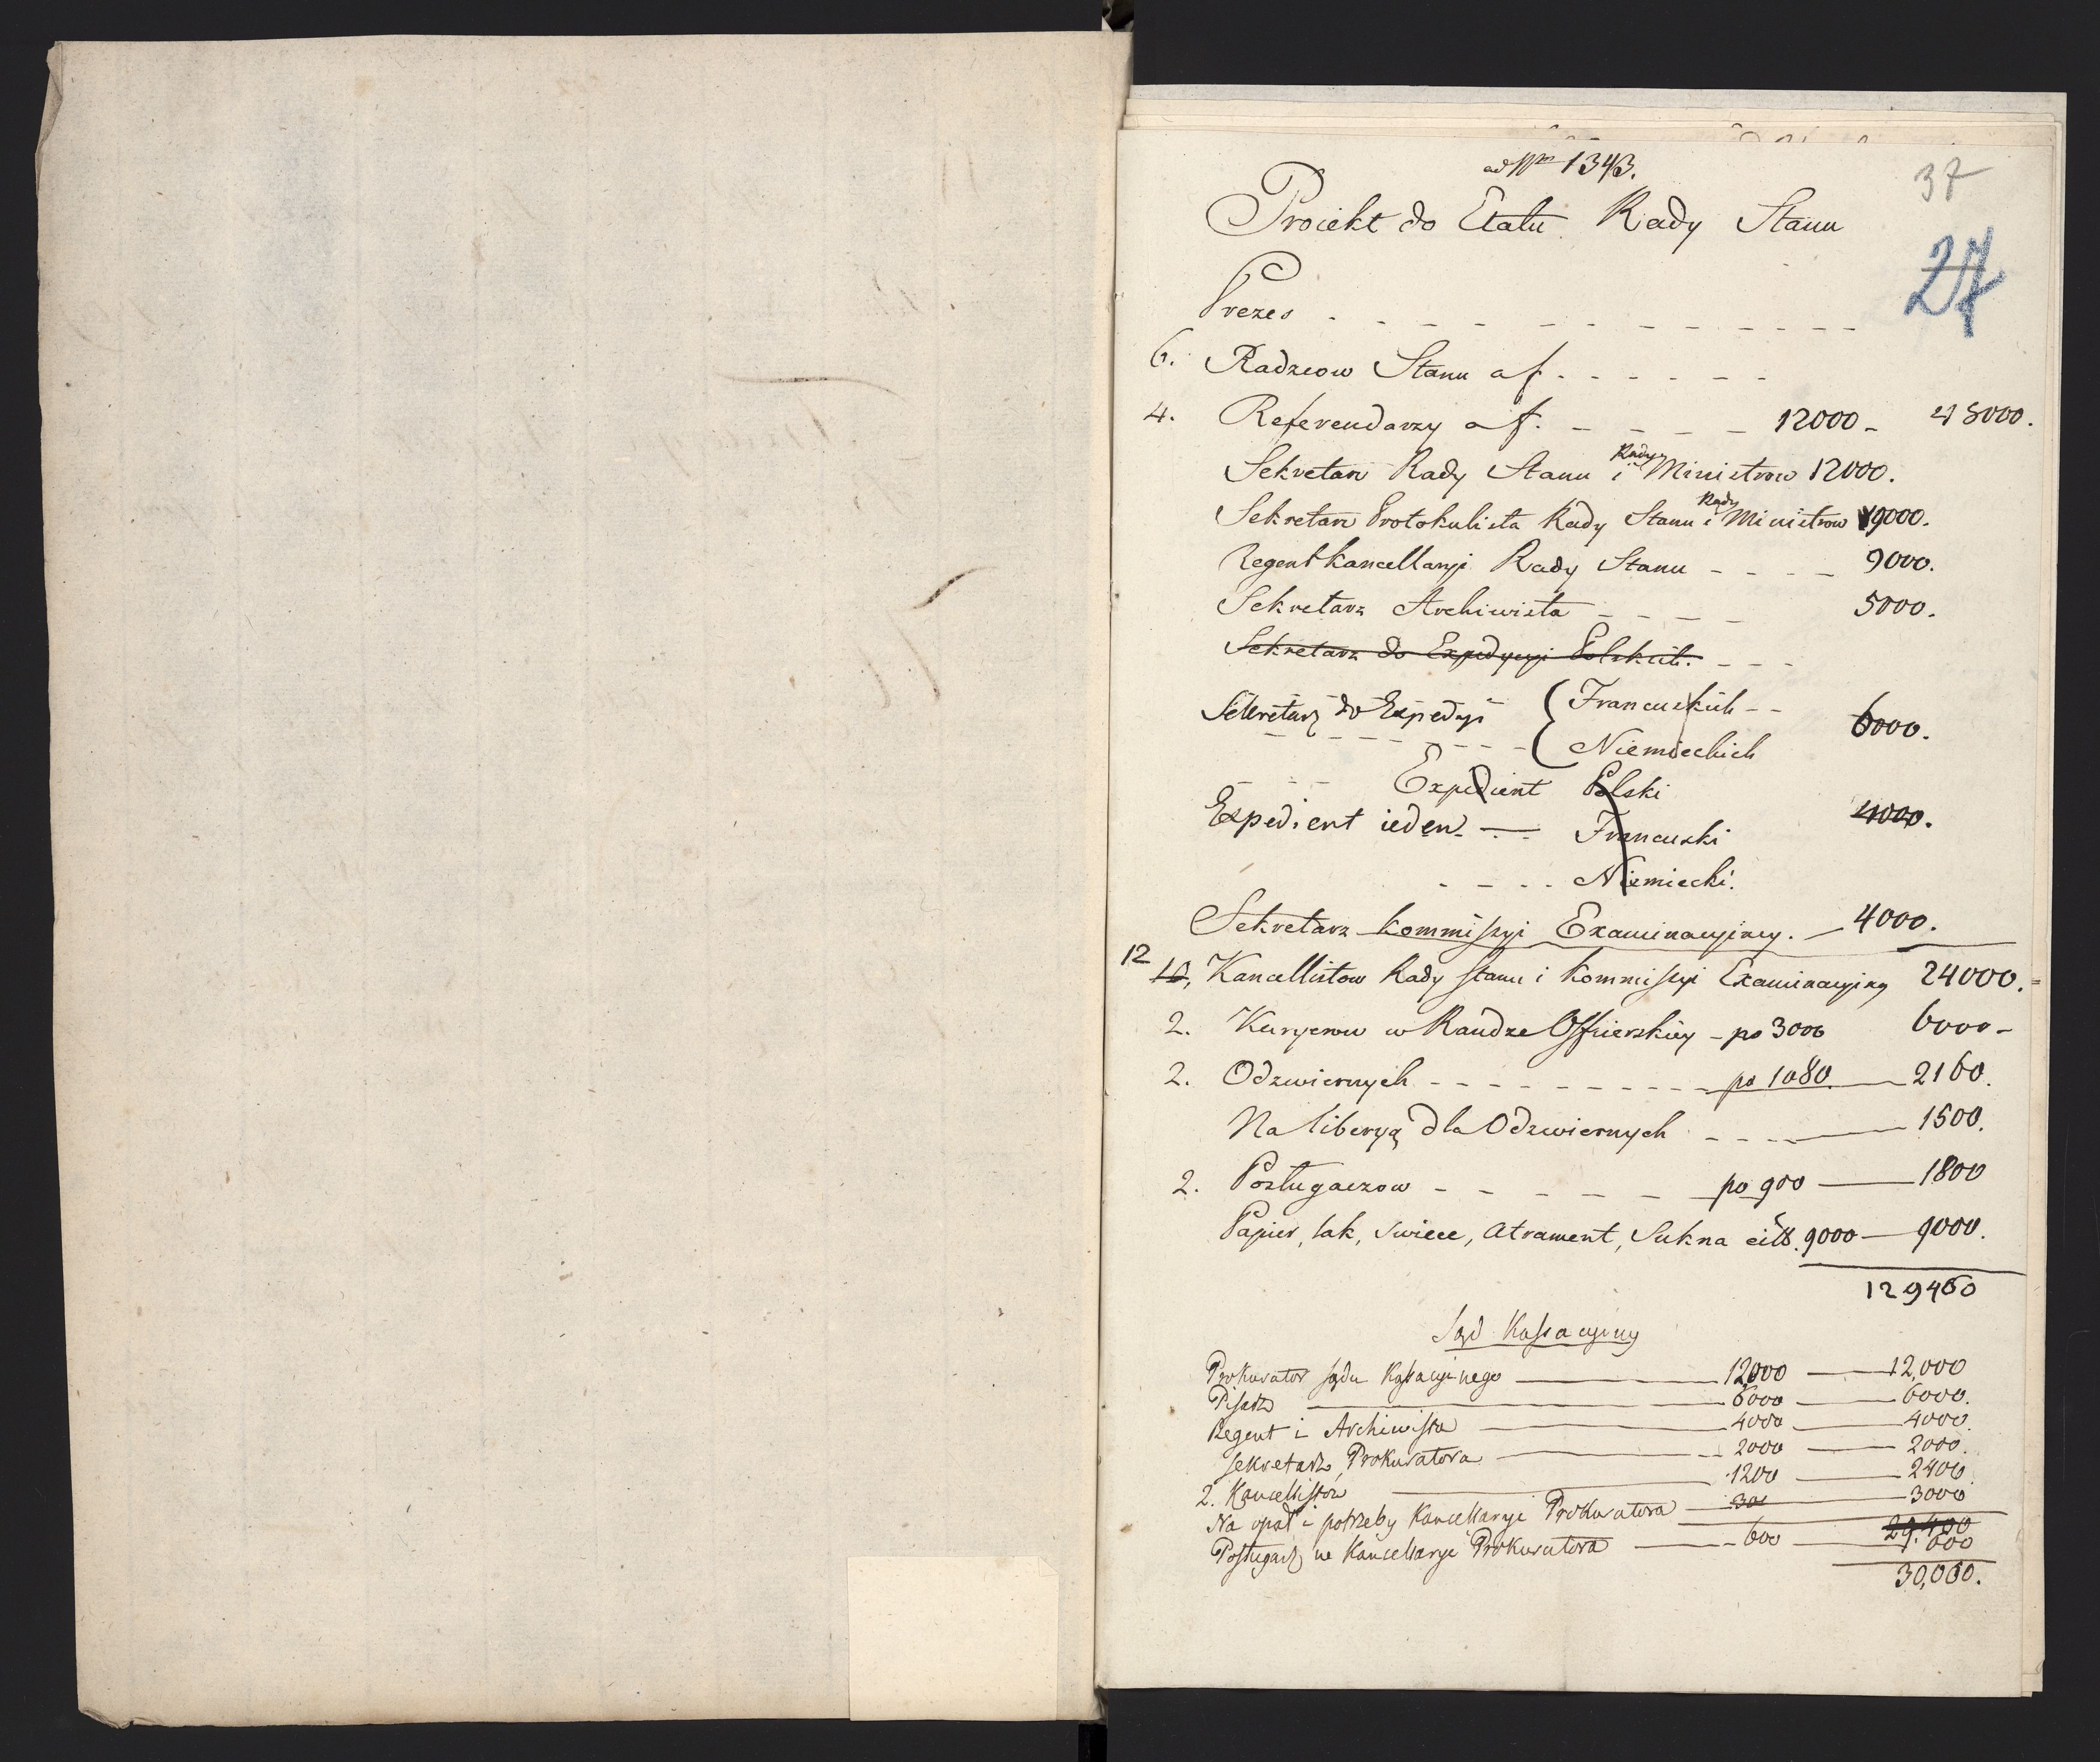 ad Nrm 1343.
37
Proiekt do Etatu Rady Stanu
27
Prezes - - - - - - - - - - -
6. Radzcow Stanu a f. - - - - - -
4. Referendarzy a f. - - - - 12000 - 48000.
Sekretarz Rady Stanu i Rady Ministrow 12000.
Sekretarz Protokulista Rady Stanu i Rady Ministrow 9000.
Regent Kancellaryi Rady Stanu - - - - 9000.
Sekretarz Archiwista - - - - 5000.
Sekretarz do Expedycyi Polskich. - - -
Sekretarz do Expedycyi { Francuskich - - 6000.
- - - - - - - { Niemieckich
- - - Expedient Polski
Expedient ieden - - Francuski 4000.
- - - - Niemiecki.
Sekretarz Kommissyi Examinacyiney. - 4000.
12
10. Kancellistow Rady Stanu i Kommissyi Examinacyiney 24000.
2. Kuryerow w Randze Officierskiey - po 3000 6000 -
2. Odzwiernych - - - - - - - - - - po 1080. - 2160.
Na liberyą dla Odzwiernych - - - - 1500.
2. Posługaczow - - - - - po 900 - 1800
Papier, lak, swiece, atrament, Sukna etc. 9000 - 9000.
129460
Sąd Kassacyiny
Prokurator sądu Kassacyinego - 12000 - 12,000
Pisarz - 6000 - 6000.
Regent i Archiwista - 4000 - 4000.
Sekretarz Prokuratora - 2000 - 2000.
2. Kancellistow - 1200 - 2400.
Na opał i potrzeby Kancellaryi Prokuratora - 30 - 3000
29.400
Posługacz w Kancellaryi Prokuratora - 600 - 600
30,000.